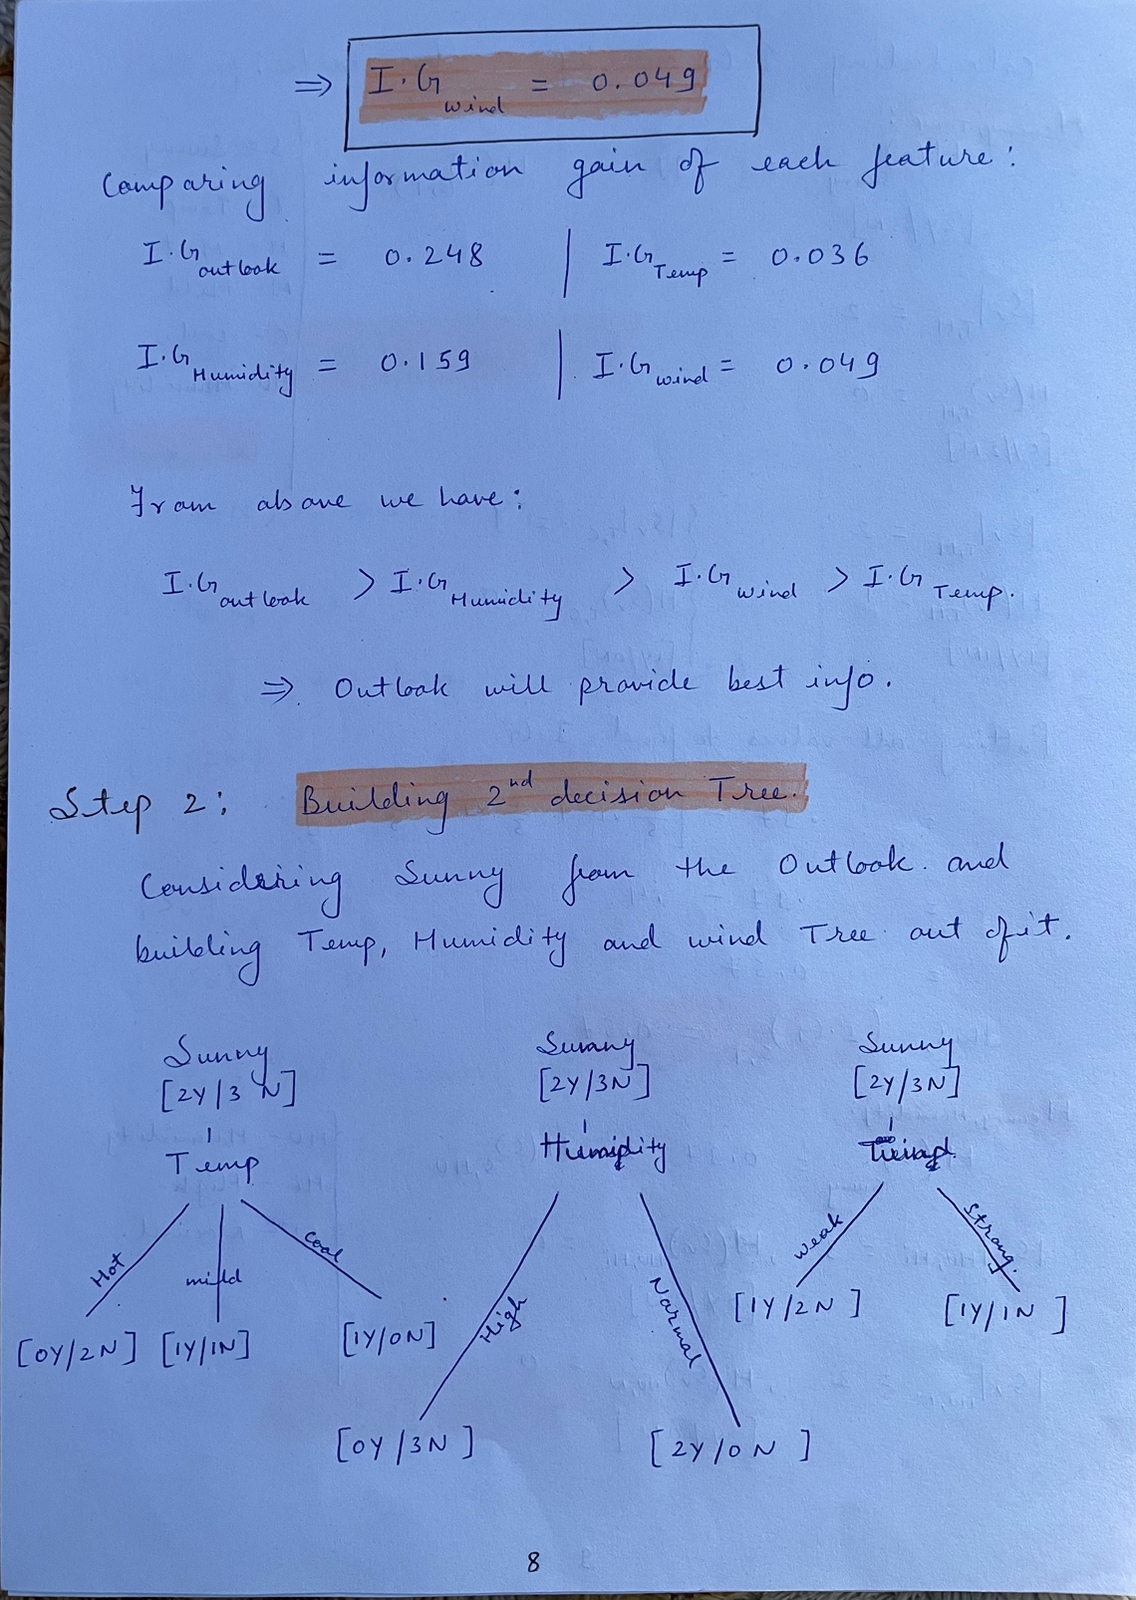 ⇒ I.G wind = 0.049
Comparing information gain of each feature:
I.G outlook = 0.248 | I.G Temp = 0.036
I.G Humidity = 0.159 | I.G wind = 0.049
From above we have:
I.G outlook > I.G Humidity > I.G wind > I.G Temp.
⇒ Outlook will provide best info.
Step 2: Building 2nd decision Tree.
Considering Sunny from the Outlook and
building Temp, Humidity and wind Tree out of it.
Sunny Sunny Sunny
[2Y/3N] [2Y/3N] [2Y/3N]
Temp Humidity Wind
Hot mild Cool High Normal Weak Strong.
[0Y/2N] [1Y/1N] [1Y/0N] [1Y/2N] [1Y/1N]
[0Y/3N] [2Y/0N]
8